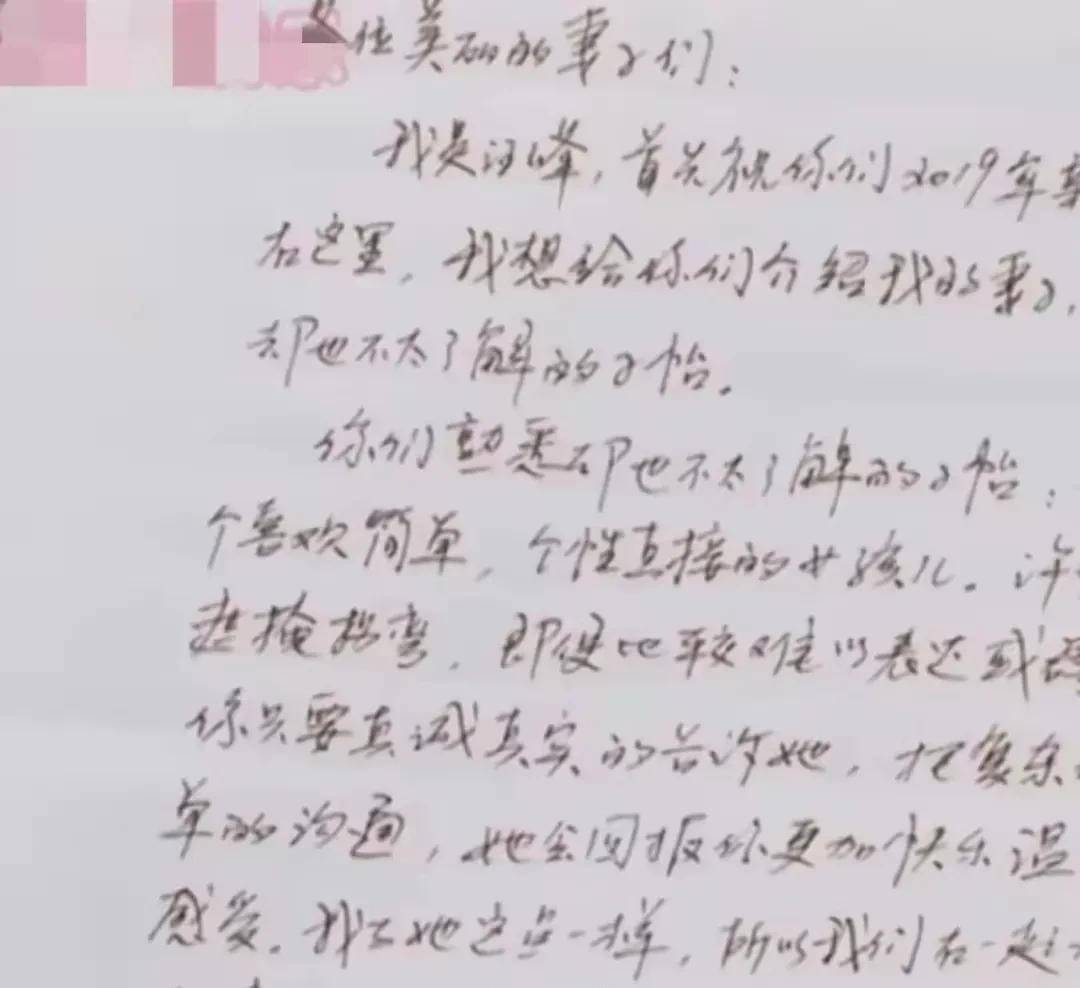 位美丽的妻子们：
我是汪峰，首先祝你们2019年
在这里，我想给你们介绍我的妻子，
却也不太了解的子怡。
你们熟悉却也不太了解的子怡：
个喜欢简单，个性直接的女孩儿。许
遮掩拐弯，即便比较难以表达或
你只要真诚真实的告诉她，把复杂
单的沟通，她会回报你更加快乐温
感受。我与她这点一样，所以我们在一起